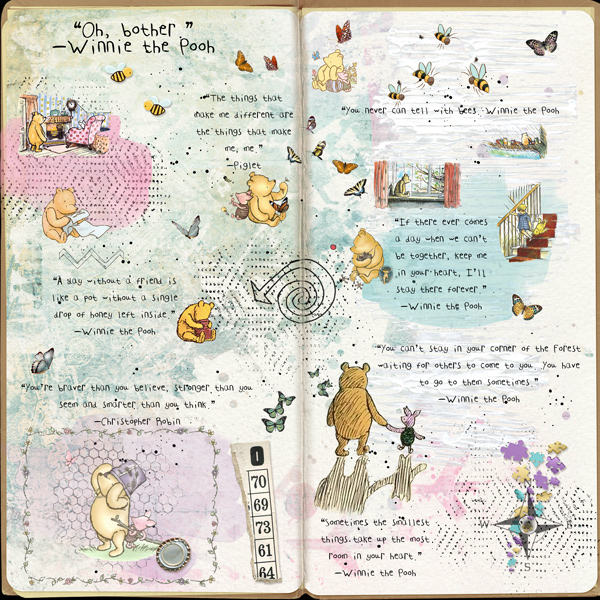 "Oh, bother"
—Winnie the Pooh
"The things that
make me different are
the things that make
me, me."
—Piglet
"A day without a friend is
like a pot without a single
drop of honey left inside"
—Winnie the Pooh
"You're braver than you believe, stronger than you
seem and smarter than you think."
—Christopher Robin
0
70
69
73
61
64
"You never can tell with bees. -Winnie the Pooh
"If there ever comes
a day when we can't
be together, keep me
in your heart, I'll
stay there forever."
—Winnie the Pooh
"You can't stay in your corner of the Forest
waiting for others to come to you. You have
to go to them sometimes."
—Winnie the Pooh
"Sometimes the smallest
things take up the most
room in your heart."
—Winnie the Pooh
W
S